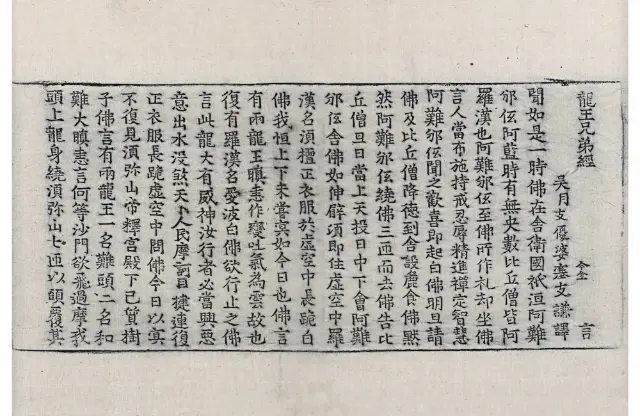 龍王兄弟經 言
吳月支優婆塞支謙譯
聞如是一時佛在舍衛國祇洹阿難
邠坻阿藍時有無央數比丘僧皆阿
羅漢也阿難邠坻至佛所作礼却坐佛
言人當布施持戒忍辱精進禪定智慧
阿難邠坻聞之歡喜即起白佛明旦請
佛及比丘僧降德到舍設麁食佛黙
然阿難邠坻繞佛三匝而去佛告比
丘僧旦日當上天投日中下會阿難
邠坻舍佛如伸臂頃即住虛空中羅
漢名湏檀正衣服於虛空中長跪白
佛我恒上下未甞冥如今日也佛言
有兩龍王瞋恚作變吐氣為雲故也
復有羅漢名愛波白佛欲行止之佛
言此龍大有威神汝行者必當興惡
意出水沒煞天下人民摩訶目揵連復
正衣服長跪虛空中問佛今日以實
不復見湏弥山帝釋宮殿下已質樹
子佛言有兩龍王一名難頭二名和
難大瞋恚言何等沙門欲飛過摩我
頭上龍身繞湏弥山七匝以頭覆其